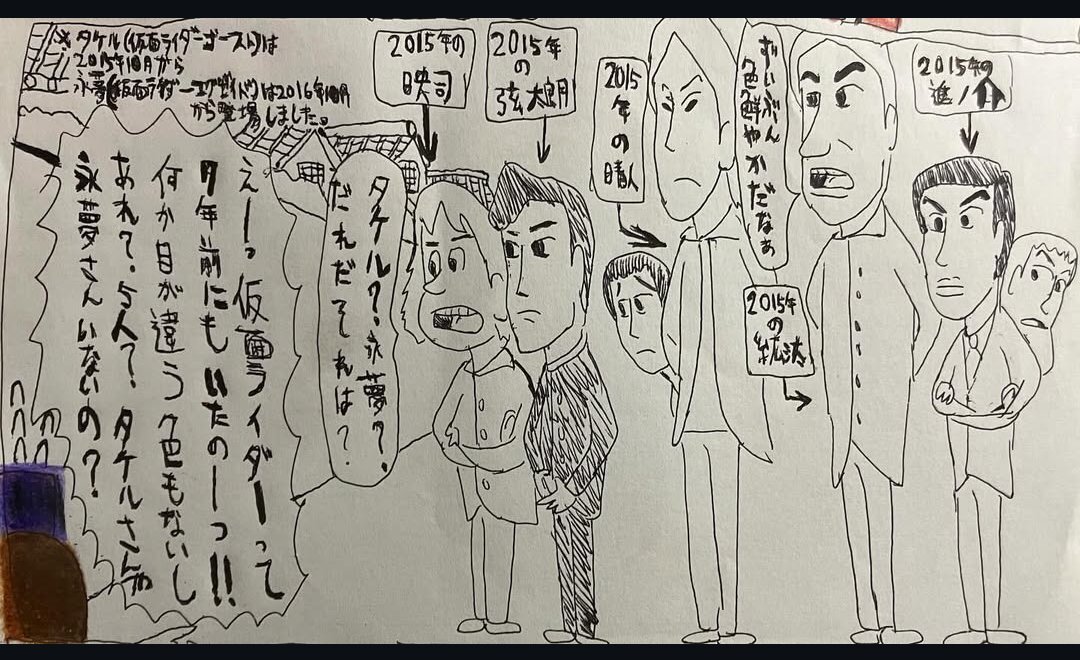 ※タケル(仮面ライダーゴースト)は
2015年10月から
永夢(仮面ライダーエグゼイド)は2016年10月
から登場しました。
2015年の
映司
2015年
の
弦太朗
2015
年
の
晴人
ずいぶん
色鮮やかだなぁ
2015年の
進ノ介
2015年
の紘汰
タケル?、永夢?、
だれだそれは?
えーっ仮面ライダーって
7年前にもいたのーっ!!
何か目が違う色もないし
あれ?、5人?、タケルさんや
永夢さんいないの?